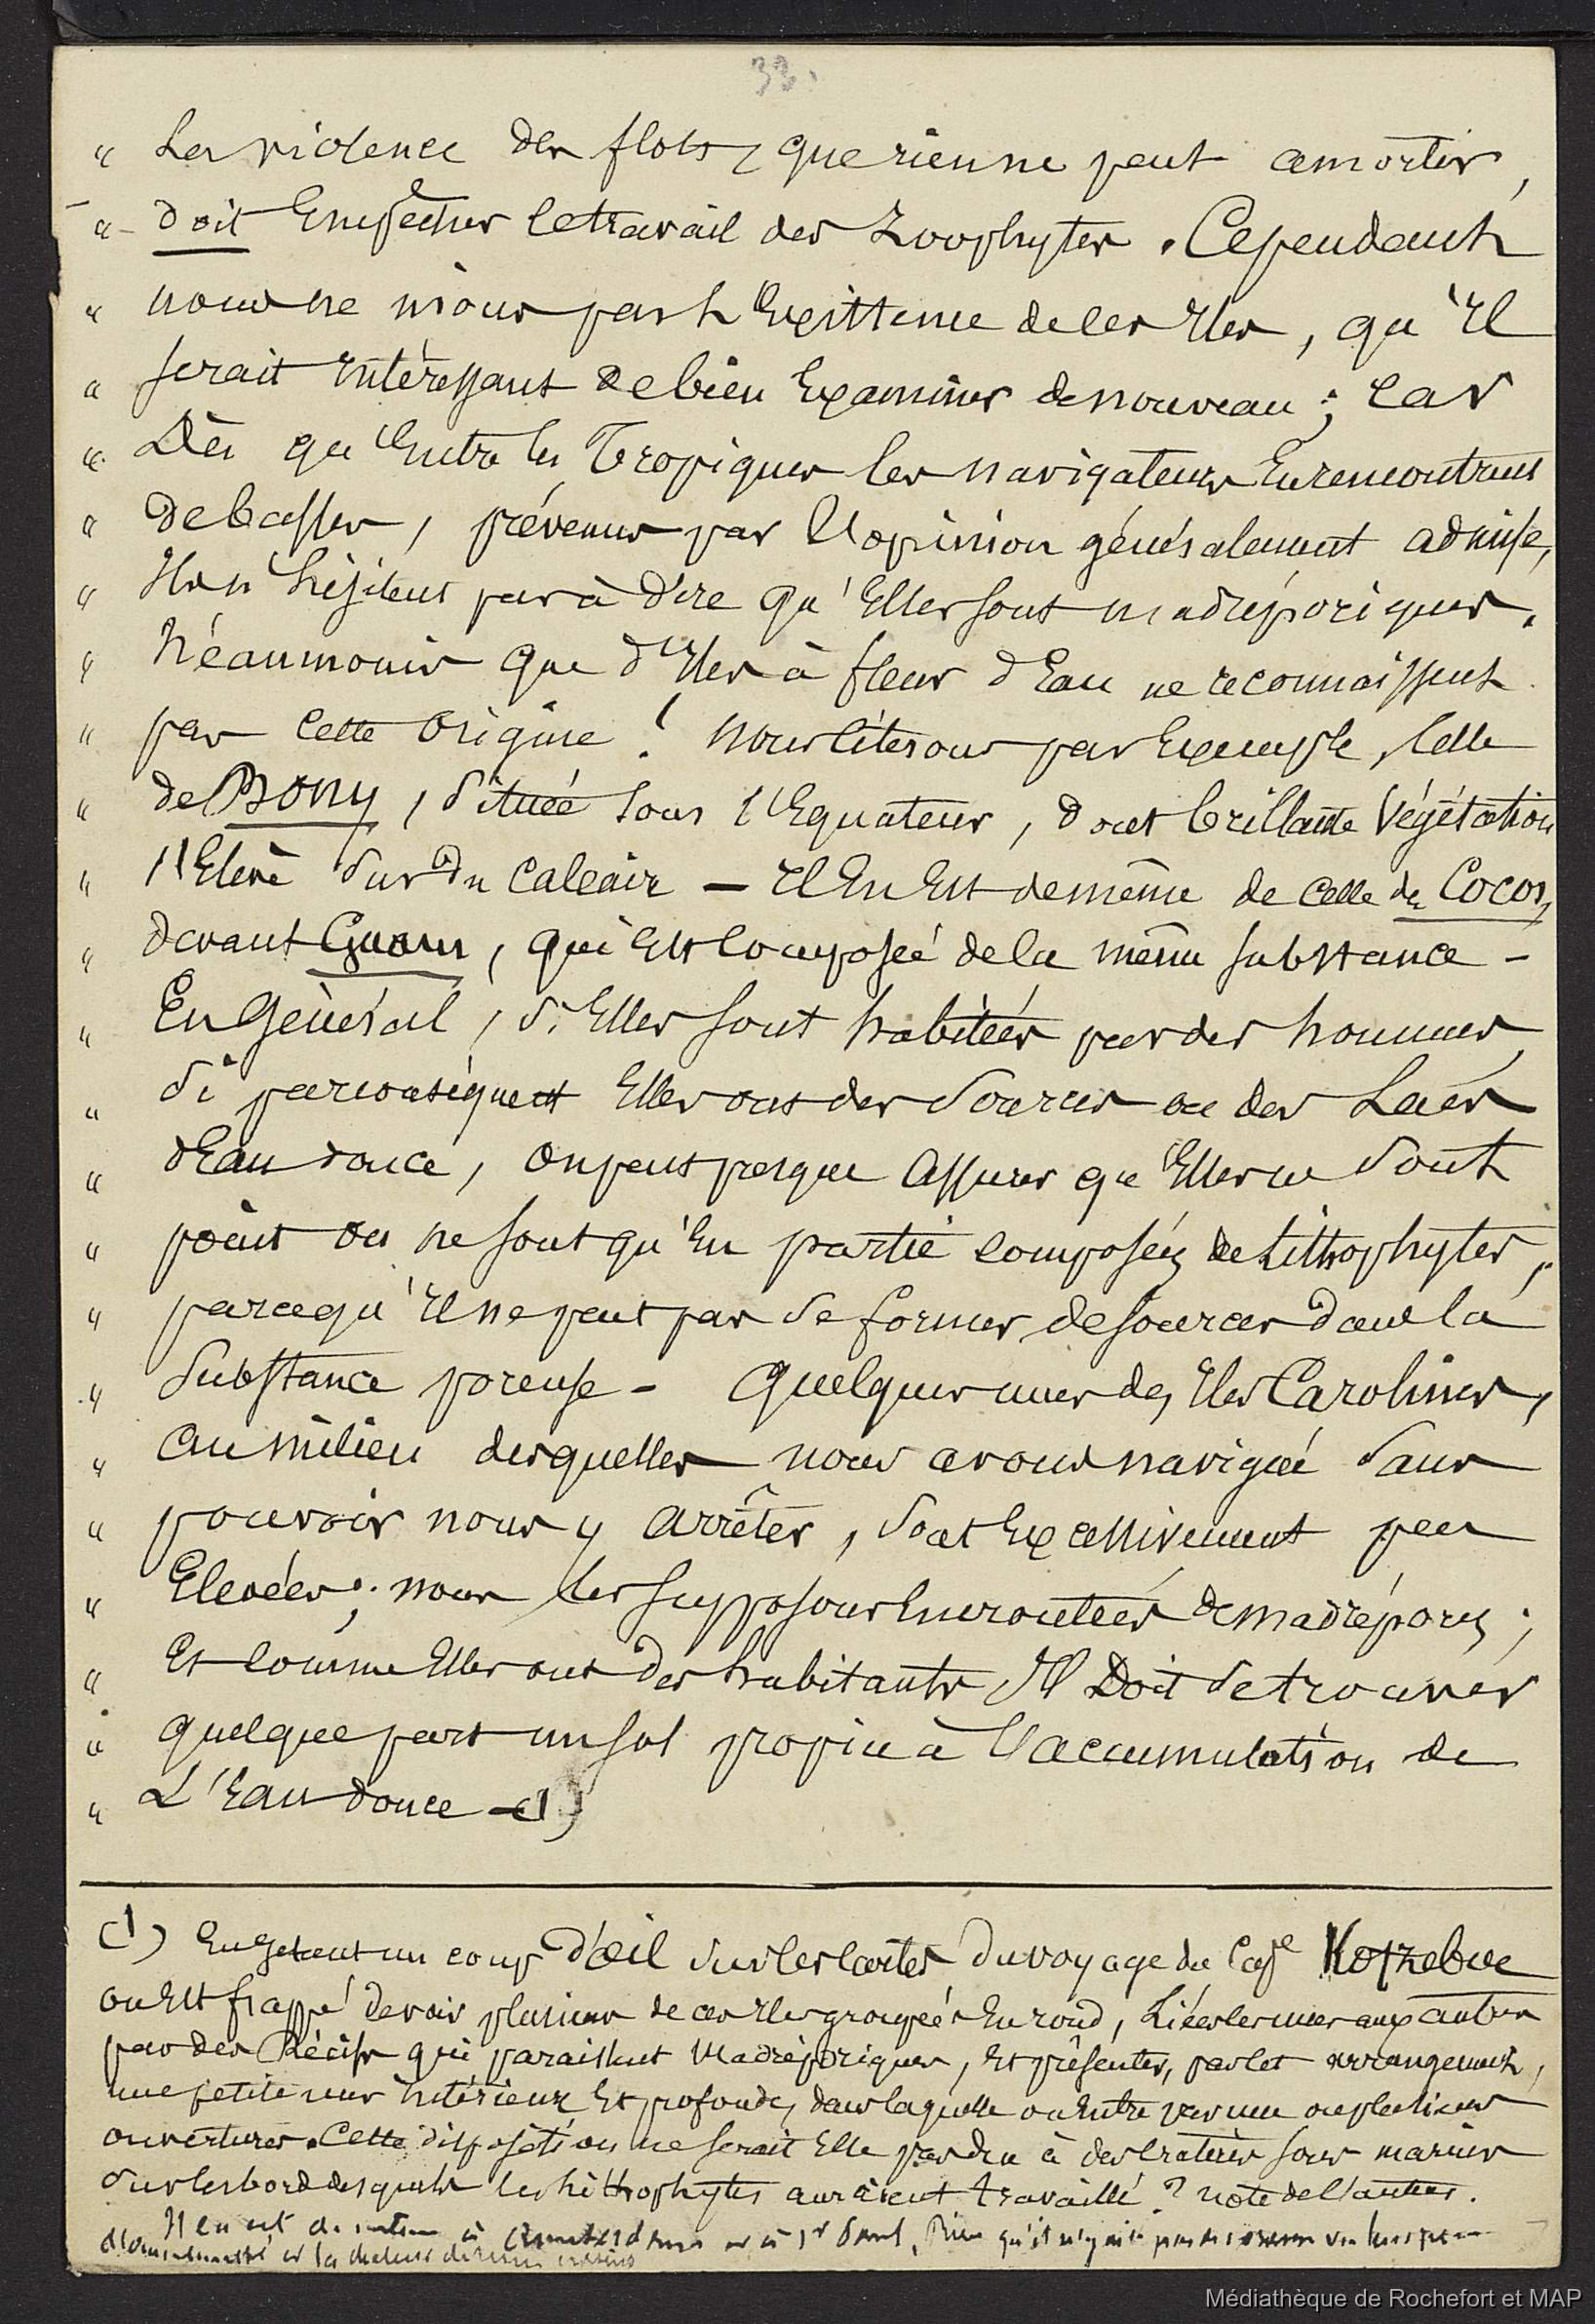 33.
" La violence des flots, que rien ne peut amortir,
" doit Empêcher le travail des Zoophytes. Cependant
" nous ne nions pas l'Existence de ces Iles, qu'Il
" serait Intéressant de bien Examiner de nouveau ; car
" Dès qu'Entre les Tropiques les navigateurs En rencontrent
" de basses, prévenus par l'opinion généralement admise,
" Ils n'hésitent pas à dire qu'Elles sont madréporiques.
" Néanmoins que d'Iles à fleur d'Eau ne reconnaissent
" pas cette origine ! nous citerons par Exemple, celle
" de Bony, située sous l'Equateur, dont brillante Végétation
" s'Elève sur du calcaire — Il En Est de même de celle des Cocos,
" devant Guam, qui Est composée de la même substance -
" En Général, si Elles sont habitées par des hommes,
" si par conséquent Elles ont des sources ou des Lacs
" d'Eau douce, on peut presque Assurer qu'Elles ne sont
" point ou ne sont qu'En partie composées de Lithophytes,
" parcequ'Il ne peut pas se former de sources dans la
" substance poreuse - Quelques unes des Iles Carolines,
" au milieu desquelles nous avons navigué sans
" pouvoir nous y arrêter, sont Excessivement peu
" Elevées ; nous les supposons Encroutées de madrépores ;
" Et comme Elles ont des habitants Il Doit se trouver
" quelque part un sol propice à l'accumulation de
" L'Eau douce - (1)
(1) En Jetant un coup d'œil sur les Cartes du voyage du Cape Kotzebue
on Est frappé de voir plusieurs de ces Iles groupées En rond, Liées les unes aux autres
par des Récifs qui paraissent Madréporiques, Et présenter, par cet arrangement,
une petite mer intérieure Et profonde, dans laquelle on Entre par une ou plusieurs
ouvertures. Cette disposition ne serait Elle pas due à des cratères sous marins
sur les bords desquels les Lithophytes auraient travaillé ? note de l'auteur.
Il en est de même à Amsterdam et à St Paul,
Médiathèque de Rochefort et MAP